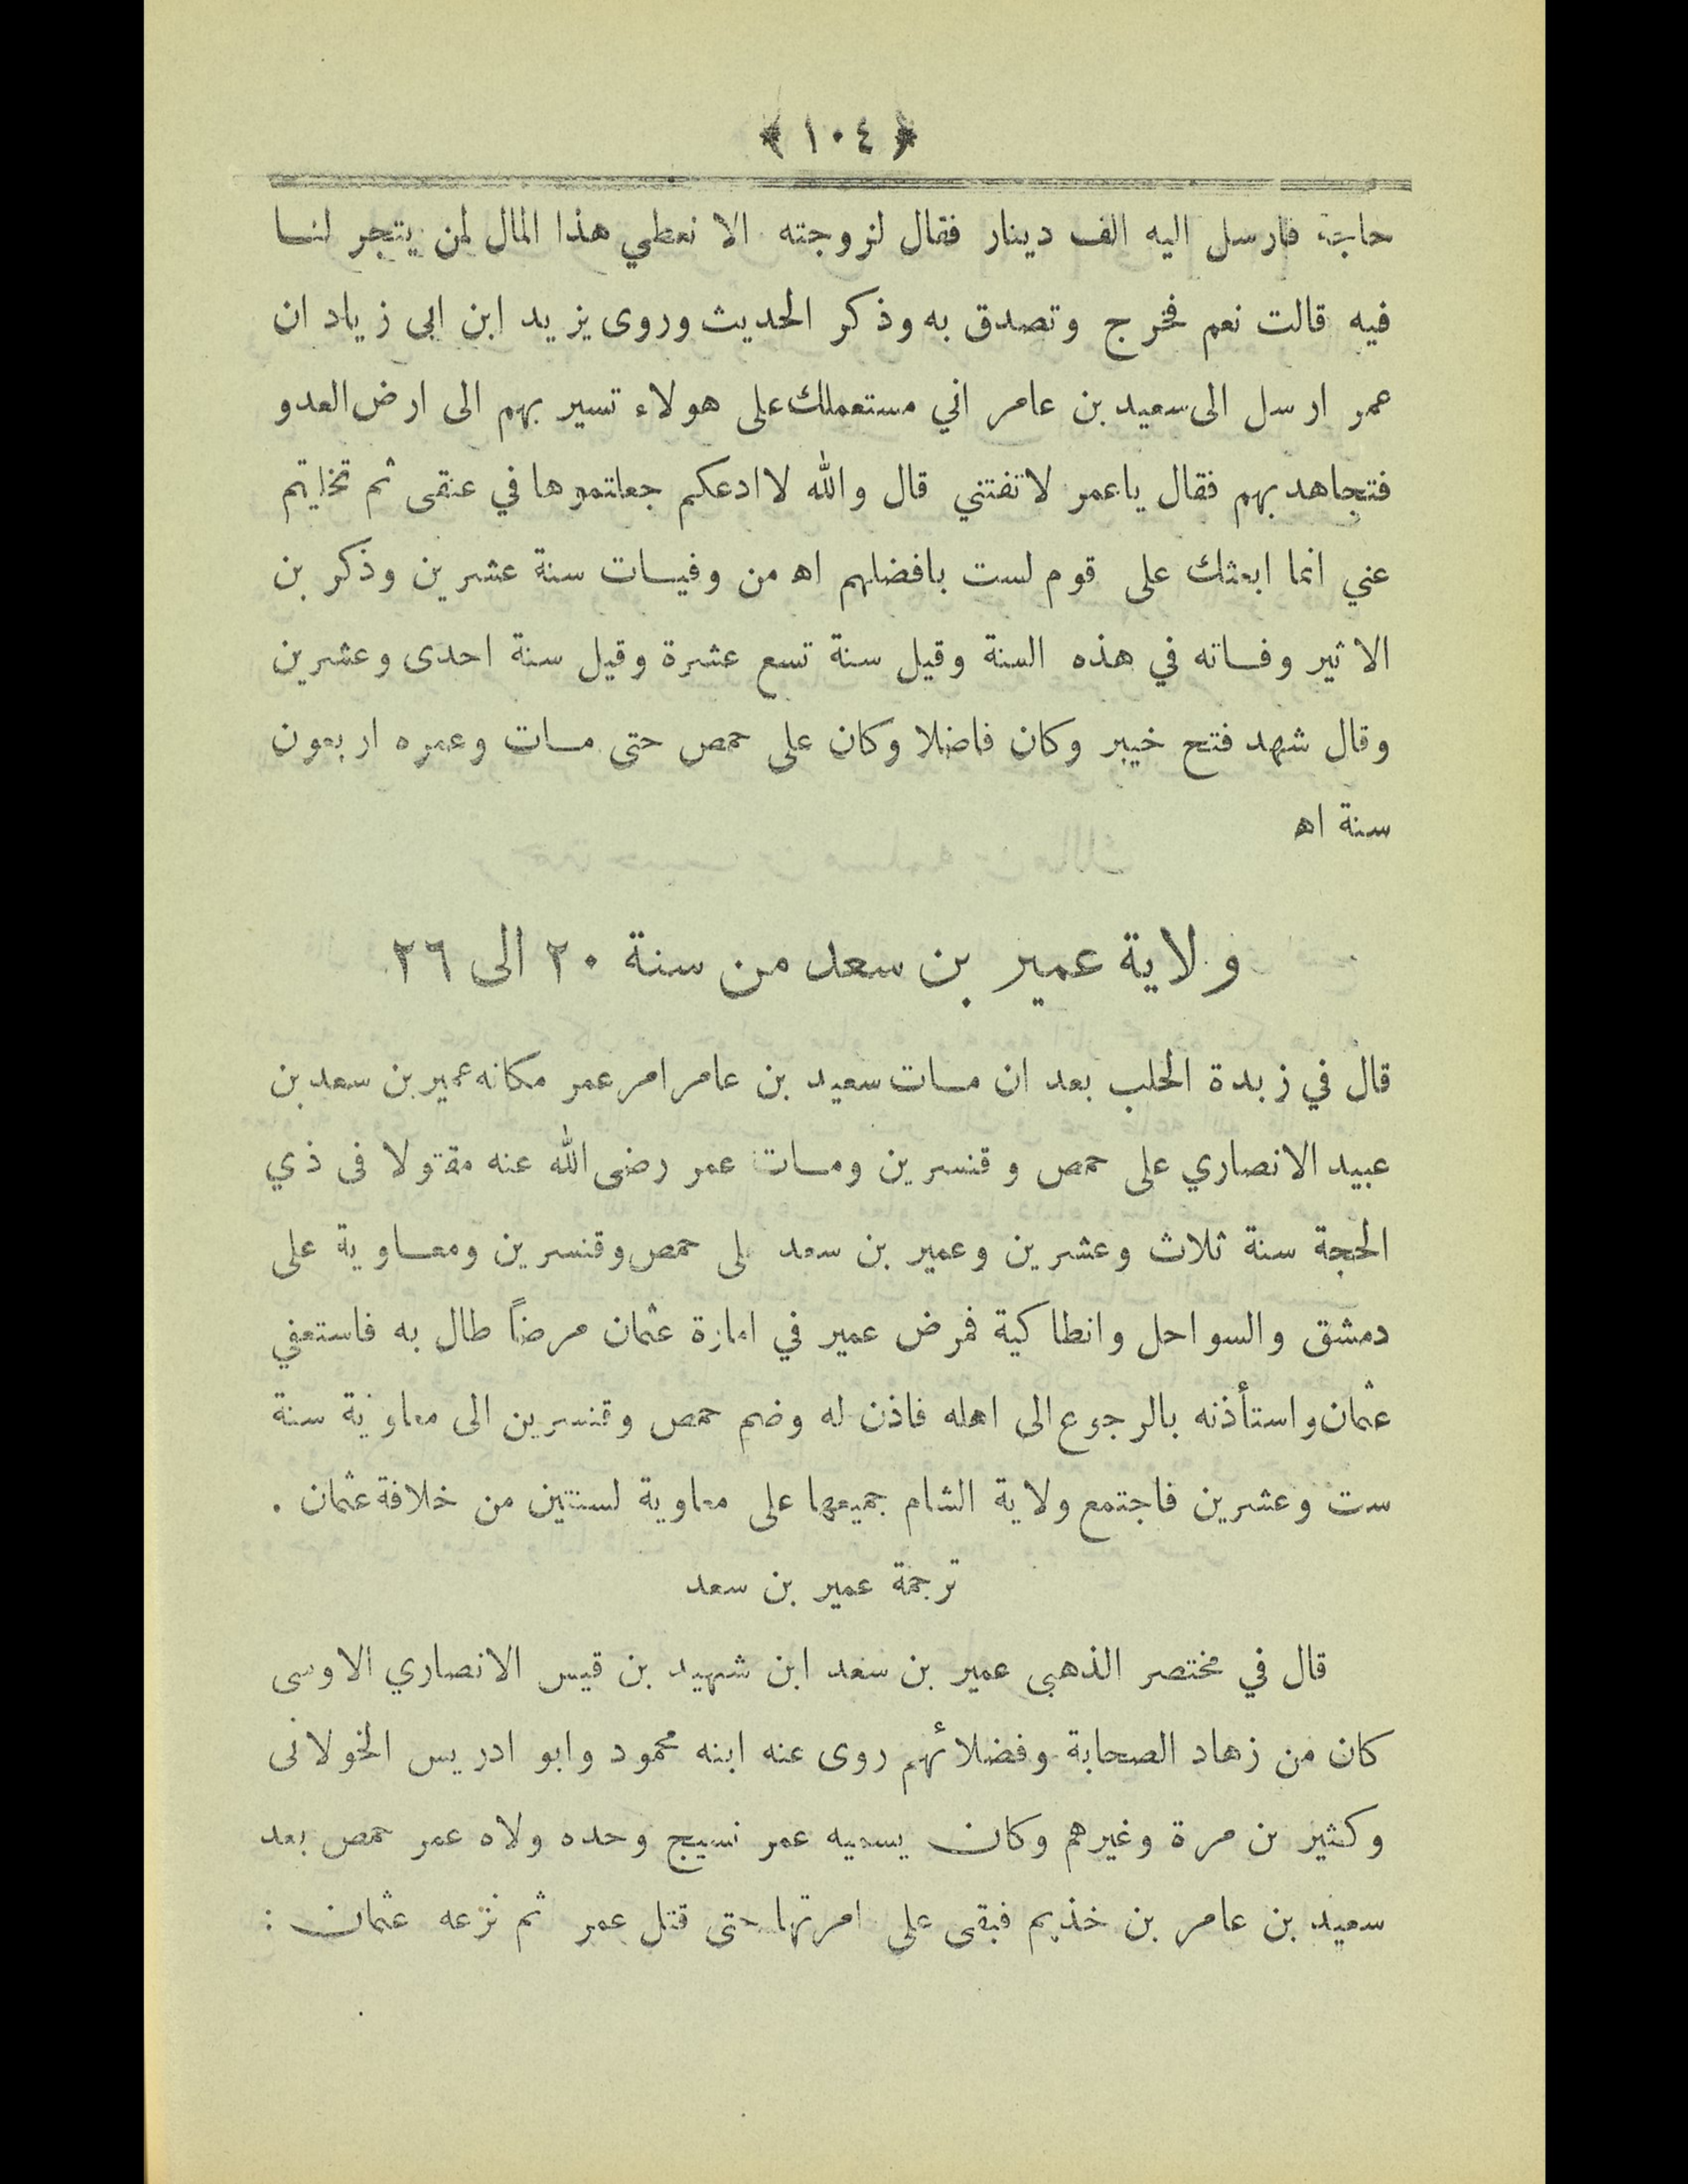 ﴿ ١٠٤ ﴾
حاجة فارسل اليه الف دينار فقال لزوجته الا نعطي هذا المال لمن يتجر لنا
فيه قالت نعم فخرج وتصدق به وذكر الحديث وروى يزيد ابن ابى زياد ان
عمر ارسل الى سعيد بن عامر اني مستعملك على هولاء تسير بهم الى ارض العدو
فتجاهد بهم فقال ياعمر لا تفتني قال والله لا ادعكم جعلتموها في عنقى ثم تخليتم
عني انما ابعثك على قوم لست بافضلهم اه من وفيات سنة عشرين وذكر بن
الاثير وفاته في هذه السنة وقيل سنة تسع عشرة وقيل سنة احدى وعشرين
وقال شهد فتح خيبر وكان فاضلا وكان على حمص حتى مات وعمره اربعون
سنة اه
ولاية عمير بن سعد من سنة ٢٠ الى ٢٦
قال في زبدة الحلب بعد ان مات سعيد بن عامر امر عمر مكانه عمير بن سعد بن
عبيد الانصاري على حمص وقنسرين ومات عمر رضى الله عنه مقتولا فى ذي
الحجة سنة ثلاث وعشرين وعمير بن سعد لى حمص وقنسرين ومعاوية على
دمشق والسواحل وانطاكية فمرض عمير في امارة عثمان مرضاً طال به فاستعفي
عثمان واستأذنه بالرجوع الى اهله فاذن له وضم حمص وقنسرين الى معاوية سنة
ست وعشرين فاجتمع ولاية الشام جميعها على معاوية لسنتين من خلافة عثمان .
ترجمة عمير بن سعد
قال في مختصر الذهبى عمير بن سعد ابن شهيد بن قيس الانصاري الاوسى
كان من زهاد الصحابة وفضلائهم روى عنه ابنه محمود وابو ادريس الخولانى
وكثير بن مرة وغيرهم وكان يسميه عمر نسيج وحده ولاه عمر حمص بعد
سعيد بن عامر بن خذيم فبقى على امرتها حتى قتل عمر ثم نزعه عثمان :